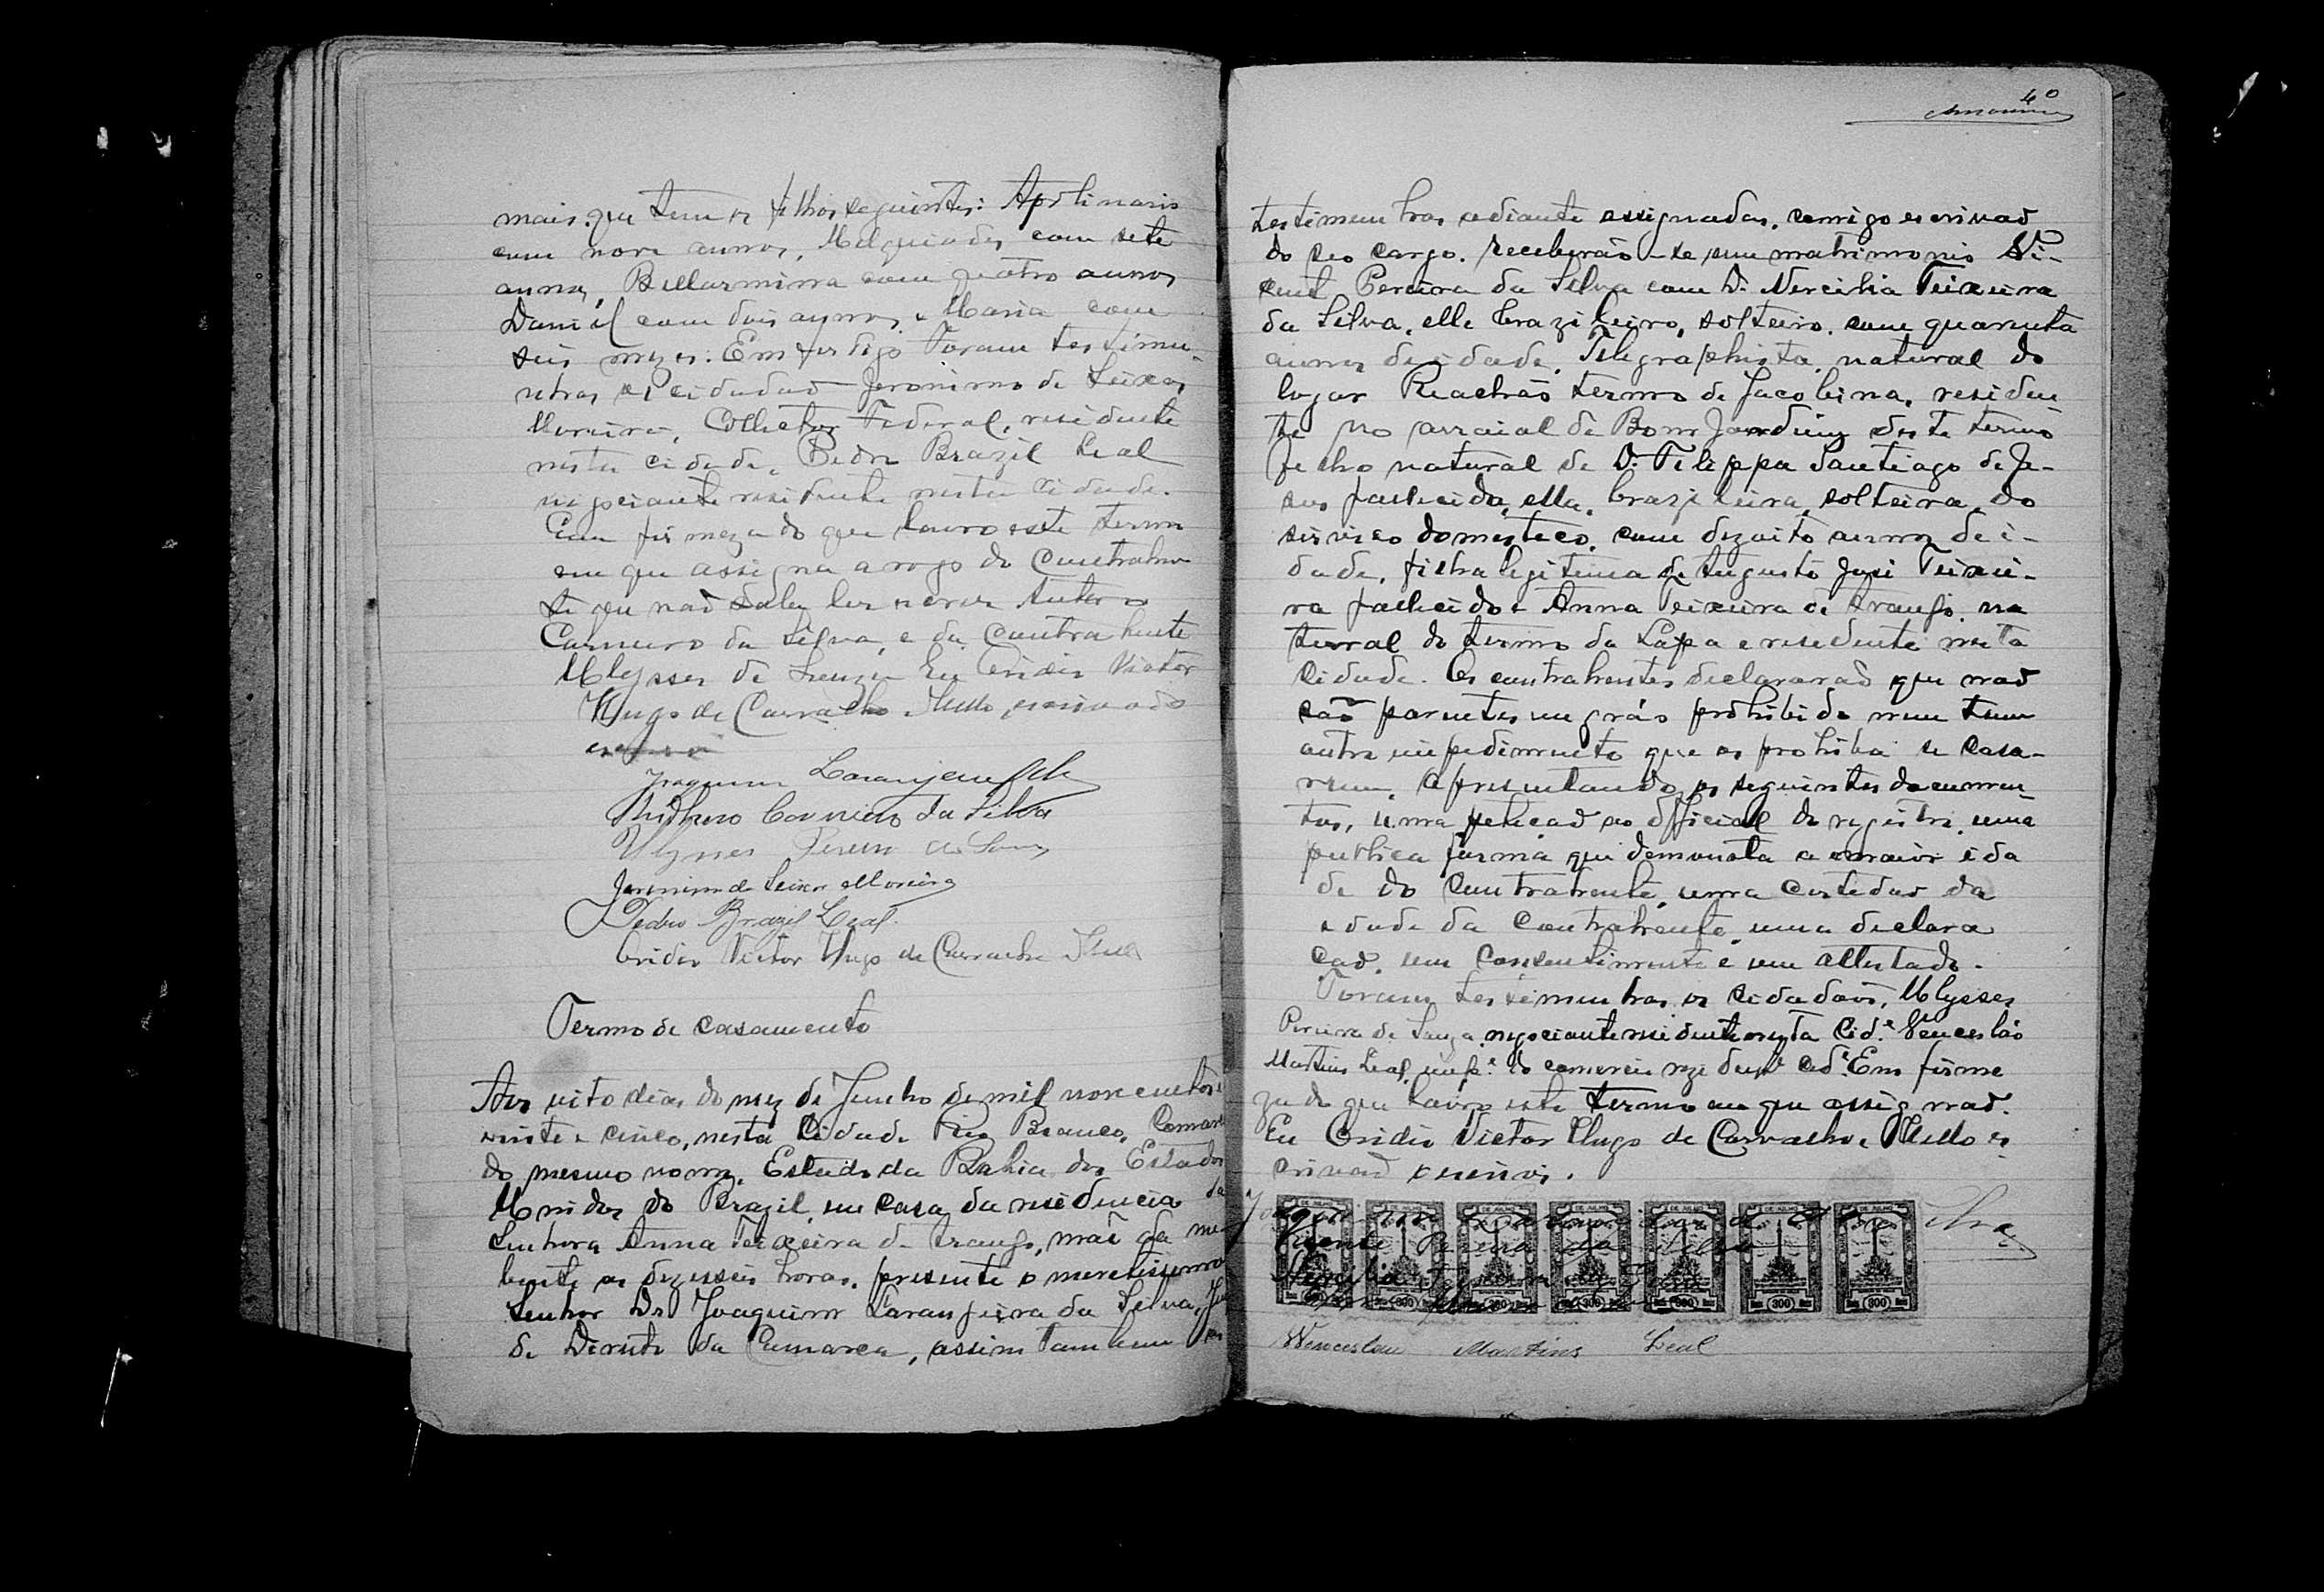 mais que tem os filhos seguintes: Apolinario
com nove annos, Melquiades com sete
annos, Bellarmina com quatro annos
Daniel com dois annos e Maria com
seis mezes. Em foram testimu-
nhas os cidadaõ Jeronimo de Seixas
Moreira, Collector Federal, residente
nesta cidade, Pedro Brazil Leal
negociante residente nesta cidade.
Em firmeza do que lavro este termo
em que assigna a rogo do Contrahen
te que naõ sabe ler escrever
Carneiro da Silva, e da Contrahente
Ulysses de Souza Eu Victor
Hugo de Carvalho Mello, escrivaõ
Joaquim Laranjeira
Carneiro da Silva
Ulysses Pereira de Souza
Jeronimo de Seixas Moreira
Pedro Brazil Leal.
Victor Hugo de Carvalho Mello
Termo de casamento
Aos oito dias do mez de Junho de mil novecentos e
vinte e cinco, nesta Cidade Rio Branco, Comarca
do mesmo nome, Estado da Bahia dos Estados
Unidos do Brazil em casa da residencia da
Senhora Anna Teixeira de Araujo, mãi da nu-
bente as dezesseis horas, presente o meretissimo
Senhor Dr Joaquim Laranjeira da Silva, Juiz
de Direito da Comarca, assim tambem as
40
testimunhas adiante assignadas, comigo escrivaõ
do seo cargo. receberão-se em matrimonio Vi-
cente Pereira da Silva com D. Nercilia Teixeira
da Silva, elle brazileiro, solteiro, com quarenta
annos de idade, Telegraphista, natural do
lugar Riachão termo de Jacobina, residen
te no arraial de Bom Jardim deste termo
filho natural de D. Filippa Santiago de Je-
sus fallecida, ella, brazileira, solteira, do
serviço domesteco, com dezoito annos de i-
dade, filha legitima de Augusto José Teixei-
ra fallecido e Anna Teixeira de Araujo, na
tural do termo da Lapa e residente nesta
Cidade. Os contrahentes declararaõ que naõ
saõ parentes em gráo prohibido nem tem
outro impedimento que os prohiba de casa-
rem, apresentando os seguintes documen-
tos, uma petiçaõ ao official do registro, uma
publica forma que demonsta a maior ida
de do Contrahente, uma certedaõ da
edade da Contrahente, uma declara
çaõ, um consentimento e um attestado.
Foram testemunhas os cidadaõs, Ulysses
Pereira de Souza, negociante residente nesta Cid.e Venceslão
Martins Leal, emp.o do comercio rezidente Cid.e Em firme
za do que lavro este termo em que assignaõ.
Eu Victor Hugo de Carvalho e Mello es
crivaõ escrevi.
Joaquim Laranjeira da Silva
Vicente Pereira da Silva
Nercilia Teixeira da Silva
300 300 300 300 300 300 300
Wenceslau Martins Leal